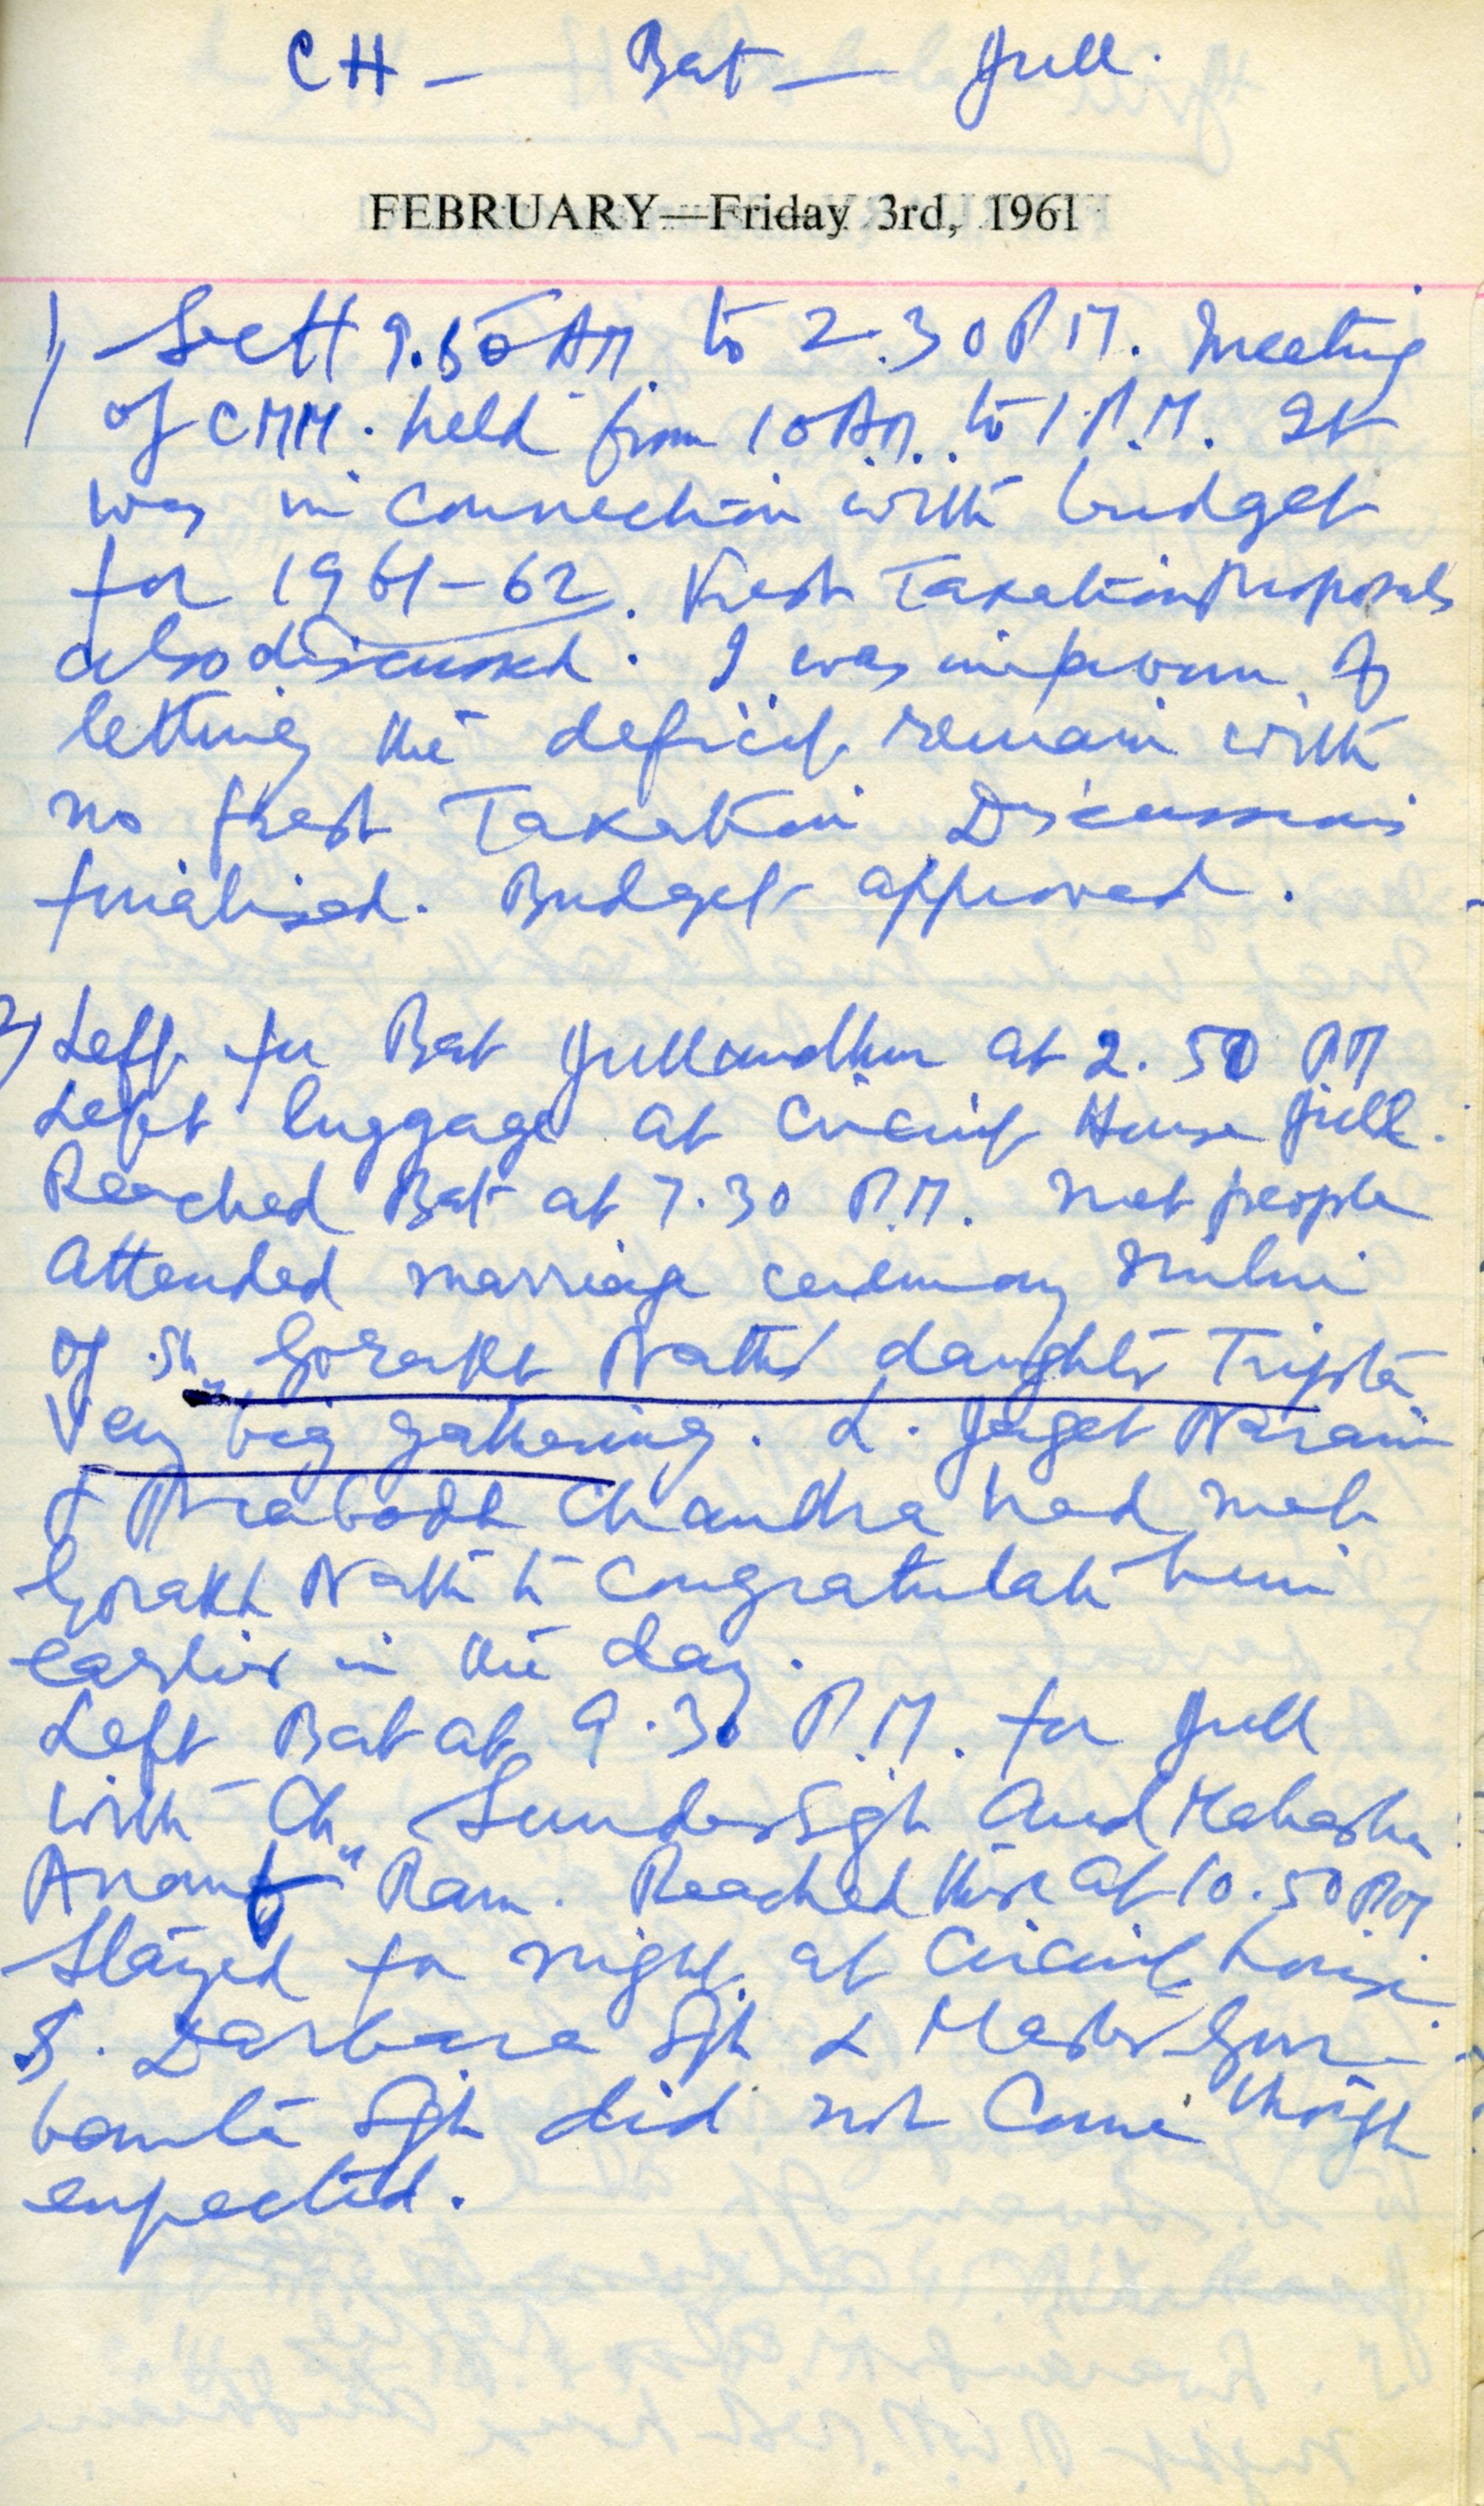 CH — Bat — Jull.
FEBRUARY—Friday 3rd, 1961
1) Sectt 9.50 AM to 2.30 P.M. Meeting
of CMM. held from 10 AM. to 1 P.M. It
was in connection with budget
for 1961-62. Fresh Taxation Proposals
also discussed. I was in favour of
letting the deficit remain with
no fresh Taxation Discussions
finalised. Budget approved.
2) Left for Bat Jullundhur at 2.50 PM
Left luggage at Circuit House Jull.
Reached Bat at 7.30 P.M. met people
Attended marriage ceremony
of Sh. Gorakh Nath's daughter Tripta
Very big gathering. L. Jagat Narain
& Prabodh Chandra had met
Gorakh Nath to Congratulate him
earlier in the day.
Left Bat at 9.30 P.M. for Jull
with Ch. Sunder Sgh and Mahasha
Anant Ram. Reached there at 10.50 PM
Stayed for night at Circuit house
S. Darbara Sgh & Master Gur-
banta Sgh did not Come though
expected.